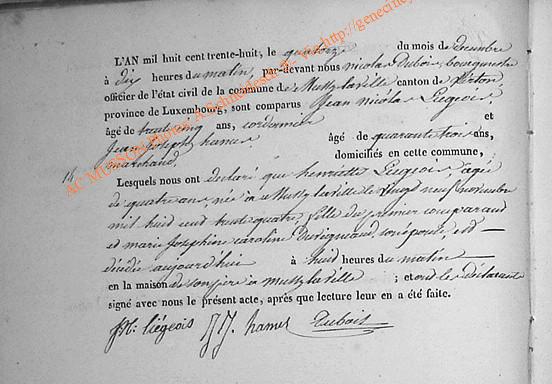 L'AN mil huit cent trente-huit, le quatorze du mois de Decembre
à dix heures du matin, par-devant nous nicolas Dubois, bourgmestre
officier de l'état civil de la commune de Mussy la ville canton de Virton
province de Luxembourg, sont comparus Jean nicolas Liegeois,
âgé de trente cinq ans, cordonnier et
Jean Joseph hames âgé de quarante trois ans,
marchand, domiciliés en cette commune,
Lesquels nous ont declaré que henriette Liegeois, agée
de quatre ans, née à Mussy la ville le vingt neuf novembre
mil huit cent trente quatre, fille du premier comparant
et marie Josephine caroline son épouse, est
décédée aujourd'hui à huit heures du matin
en la maison de son père à Mussy la ville ; et ont les déclarants
signé avec nous le présent acte, après que lecture leur en a été faite.
JN: liégeois JJ. hames Dubois
AC MUSSON Photos A. Schneidesch